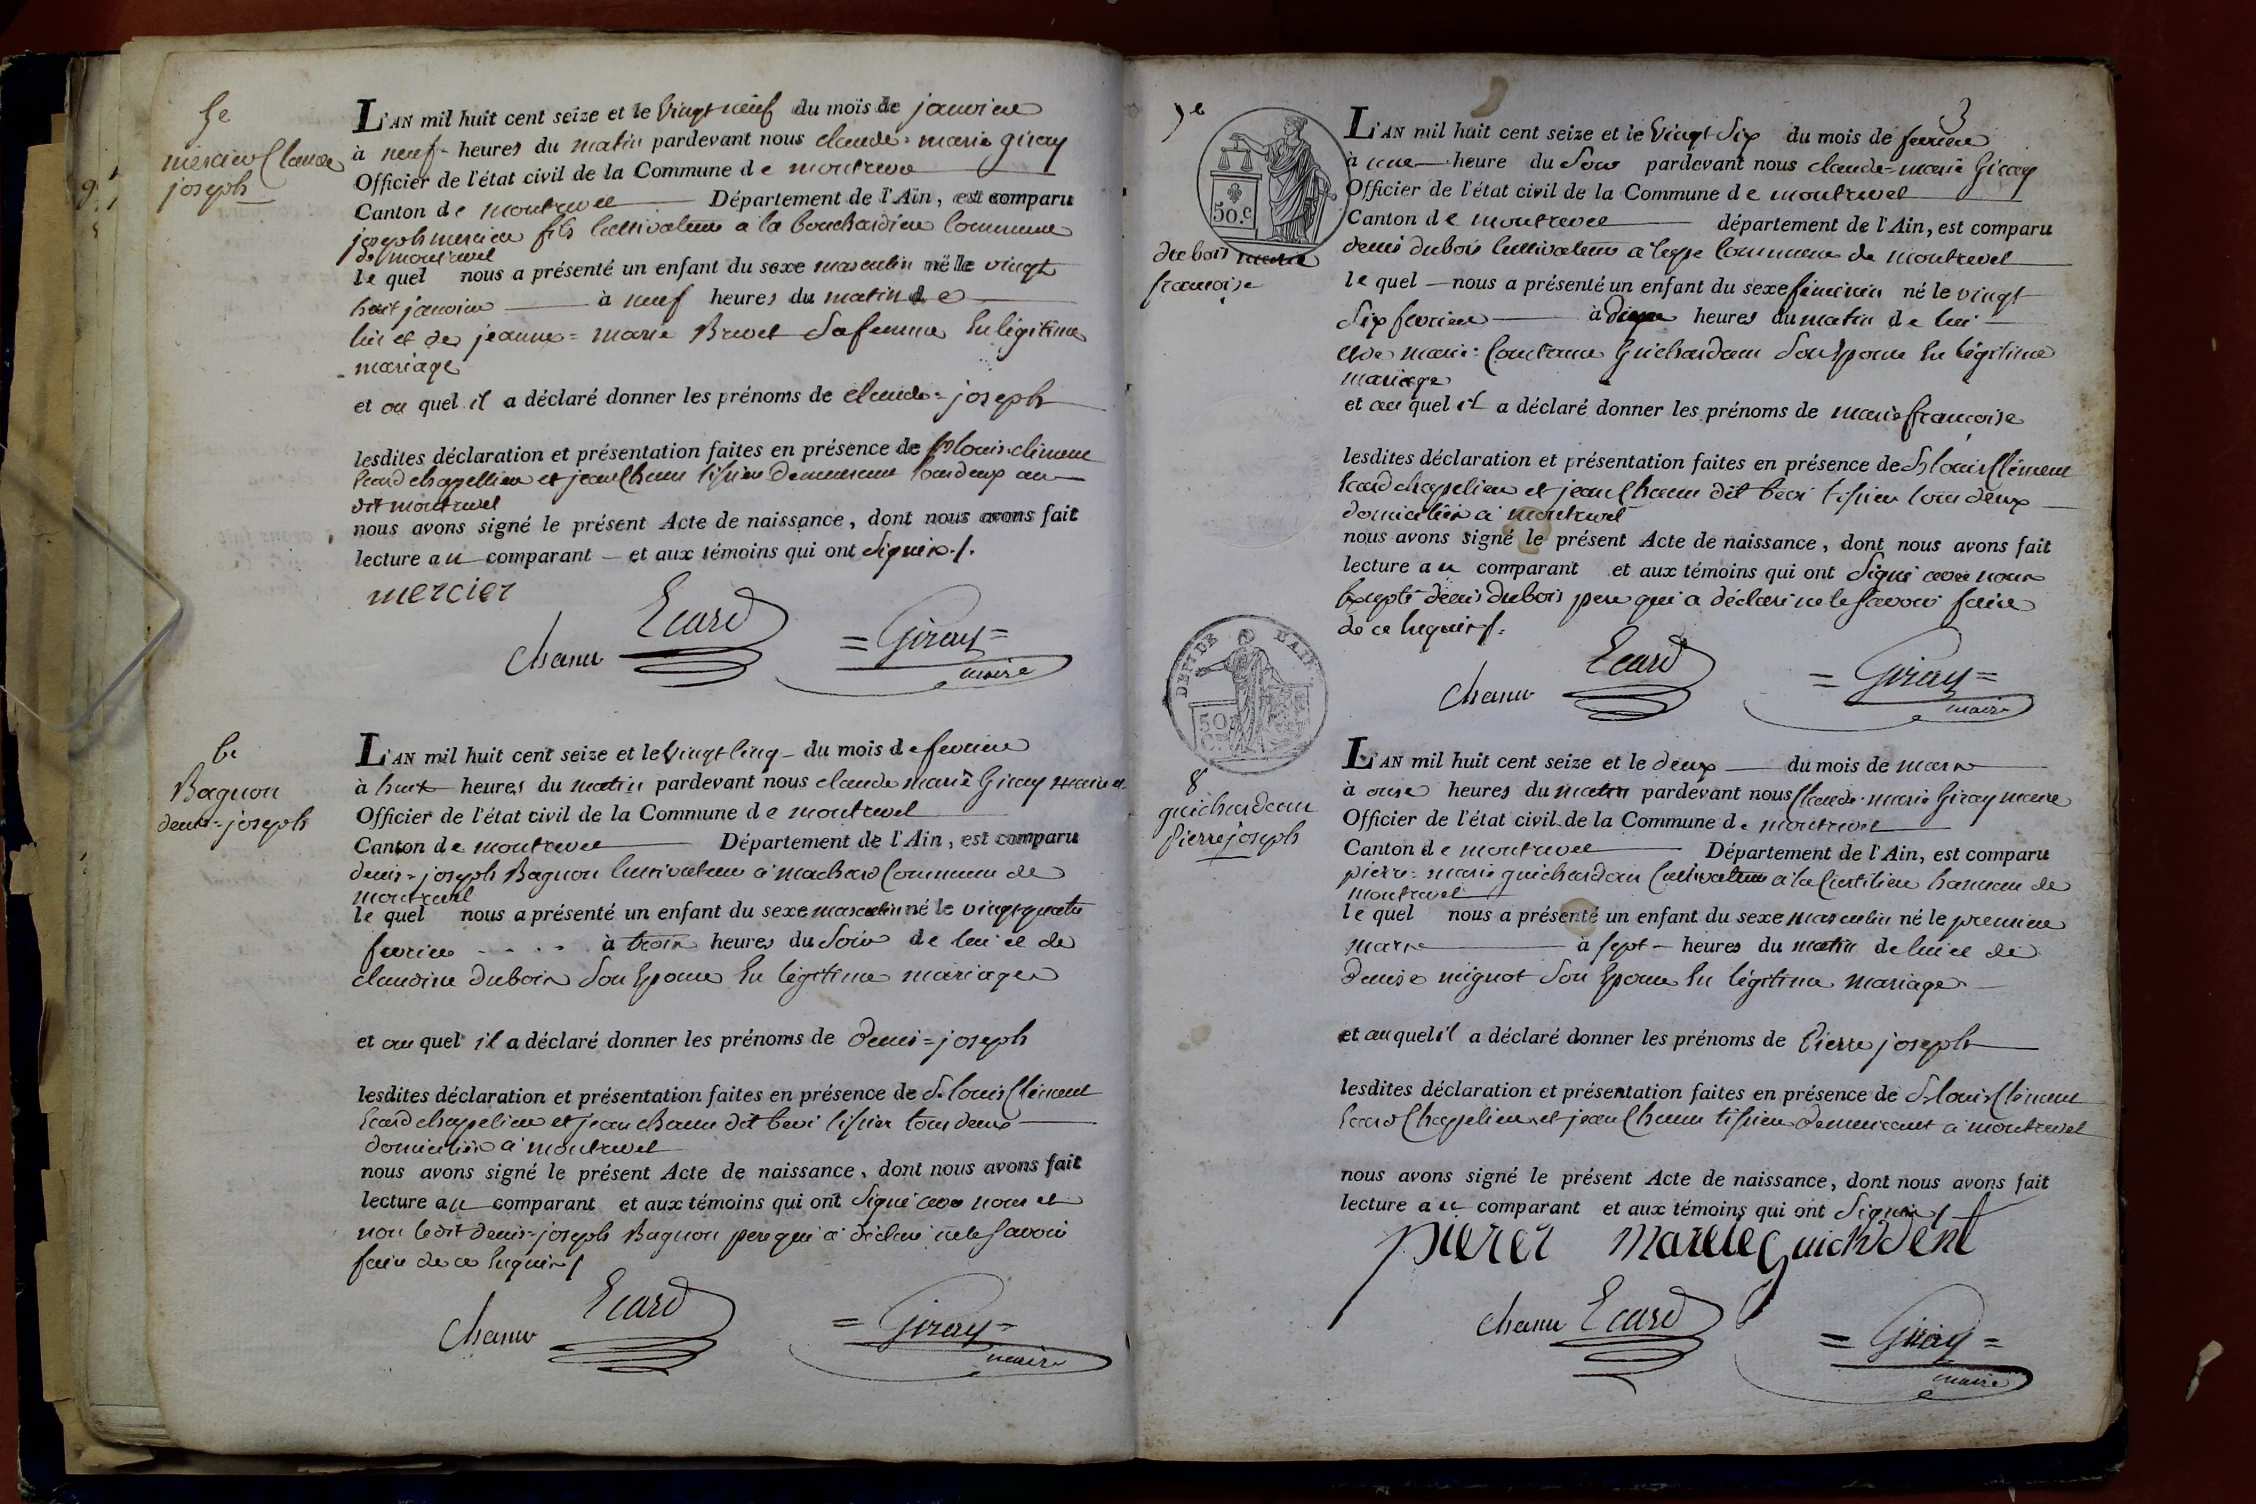 5e
mercier Claude
joseph
L'AN mil huit cent seize et le vingt neuf du mois de janvier
à neuf heures du matin pardevant nous claude = marie giray
Officier de l'état civil de la Commune de montrevel
Canton de montrevel Département de l'Ain, est comparu
joseph mercier fils cultivateur a la bouchardiere commune
de montrevel
le quel nous a présenté un enfant du sexe masculin né le vingt
huit janvier à neuf heures du matin de
lui et de jeanne = marie Brevet sa femme en légitime
mariage
et au quel il a déclaré donner les prénoms de claude = joseph
lesdites déclaration et présentation faites en présence de Sr louis clement
Ecard chapellier et jean Chanu tissier demeurant tous deux au
dit montrevel
nous avons signé le présent Acte de naissance, dont nous avons fait
lecture au comparant et aux témoins qui ont signés ./.
mercier
chanu Ecard = Giray =
maire
6e
Bagnon
denis = joseph
L'AN mil huit cent seize et le vingt cinq du mois de fevrier
à huit heures du matin pardevant nous claude marie Giray maire et
Officier de l'état civil de la Commune de montrevel
Canton de montrevel Département de l'Ain, est comparu
denis = joseph Bagnon cultivateur a machard Commune de
montrevel
le quel nous a présenté un enfant du sexe masculin né le vingt quatre
fevrier à trois heures du soir de lui et de
claudine dubois son Epouse En légitime mariage
et au quel il a déclaré donner les prénoms de denis = joseph
lesdites déclaration et présentation faites en présence de Sr louis Clément
Ecard chapelier et jean chanu dit bevi tissier tous deux
domicilies a montrevel
nous avons signé le présent Acte de naissance, dont nous avons fait
lecture au comparant et aux témoins qui ont signé avec nous et
non ledit denis = joseph Bagnon pere qui a déclaré ne le savoir
faire de ce Enquis /
chanu Ecard = Giray =
maire
3
7e
50.c
dubois marie
françoise
L'AN mil huit cent seize et le vingt six du mois de fevrier
à une heure du soir pardevant nous claude = marie Giray
Officier de l'état civil de la Commune de montrevel
Canton de montrevel département de l'Ain, est comparu
denis dubois cultivateur a Commune de montrevel
le quel nous a présenté un enfant du sexe féminin né le vingt
six fevrier à heures du matin de lui
et de marie = Constance Guichardan son Epouse En légitime
mariage
et au quel il a déclaré donner les prénoms de marie françoise
lesdites déclaration et présentation faites en présence de Sr louis Clément
Ecard chapelier et jean Chanu dit bevi tissier tous deux
domicilies a montrevel
nous avons signé le présent Acte de naissance, dont nous avons fait
lecture au comparant et aux témoins qui ont signé avec nous
Excepté denis dubois pere qui a déclaré ne le savoir faire
de ce Enquis /.
chanu Ecard = Giray =
maire
DEPT DE L'AIN
50
8e
guichardan
Pierre joseph
L'AN mil huit cent seize et le deux du mois de mars
à onse heures du matin pardevant nous Claude = marie Giray maire
Officier de l'état civil de la Commune de montrevel
Canton de montrevel Département de l'Ain, est comparu
pierre = marie guichardan Cultivateur a la hameau de
montrevel
le quel nous a présenté un enfant du sexe masculin né le premier
mars à sept heures du matin de lui et de
denise mignot son Epouse En légitime mariage
et au quel il a déclaré donner les prénoms de Pierre joseph
lesdites déclaration et présentation faites en présence de Sr louis Clément
Ecard Chapelier et jean Chanu tissier demeurant a montrevel
nous avons signé le présent Acte de naissance, dont nous avons fait
lecture au comparant et aux témoins qui ont signés /
pierer mareie guichdent
chanu Ecard = Giray =
maire